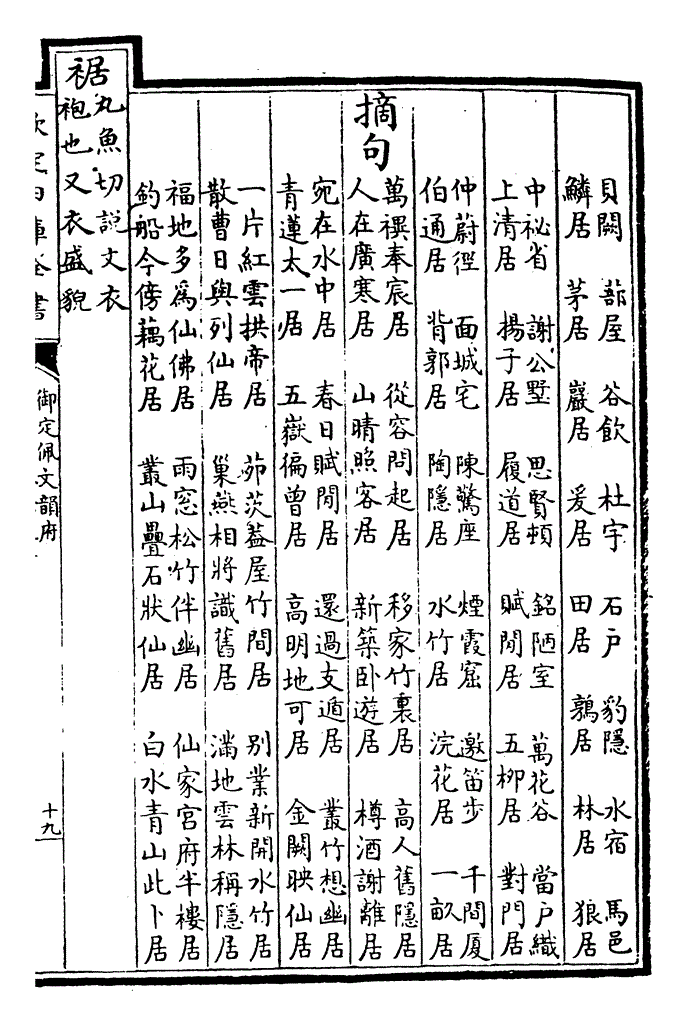 貝闕 蔀屋 谷飲 杜宇 石戶 豹隱 水宿 馬邑
鱗居 茅居 巖居 爰居 田居 鶉居 林居 狼居
中祕省 謝公墅 思賢頓 銘陋室 萬花谷 當戶織
上清居 揚子居 履道居 賦閒居 五柳居 對門居
仲蔚徑 面城宅 陳驚座 煙霞窟 邀笛步 千間厦
伯通居 背郭居 陶隱居 水竹居 浣花居 一畝居
摘句
萬禩奉宸居 從容問起居 移家竹裏居 高人舊隱居
人在廣寒居 山晴照容居 新築卧遊居 樽酒謝離居
宛在水中居 春日賦閒居 還過支遁居 叢竹想幽居
青蓮太一居 五嶽徧曾居 高明地可居 金闕映仙居
一片紅雲拱帝居 茆茨葢屋竹間居 别業新開水竹居
散曹日與列仙居 巢燕相將識舊居 滿地雲林稱隱居
福地多為仙佛居 雨窓松竹伴幽居 仙家宮府半樓居
釣船今傍藕花居 叢山疊石狀仙居 白水青山此卜居
裾
丸魚切說文衣
袍也又衣盛貌
欽定四庫全書
御定佩文韻府
十九